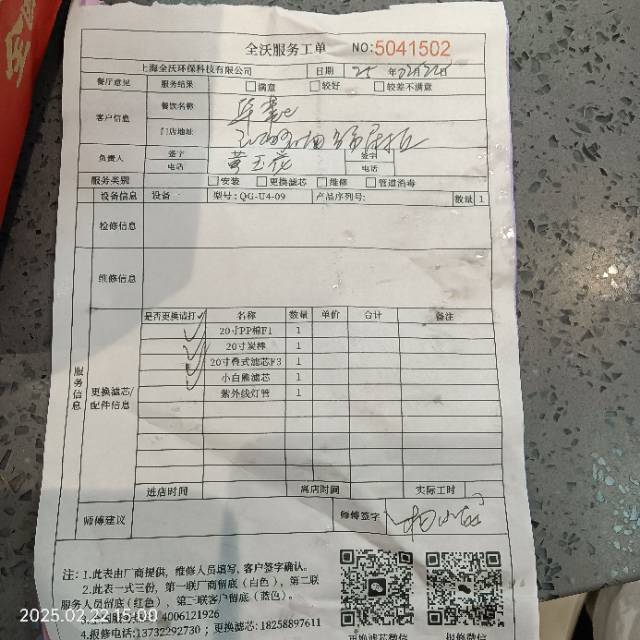 全沃服务工单 NO:5041502
上海全沃环保科技有限公司 日期 25 年02月22日
餐厅意见 服务结果 □满意 □较好 □较差不满意
客户信息 餐饮名称
门店地址
负责人 签字 黄玉花 签字
电话 电话
服务类别 □安装 □更换滤芯 □维修 □管道消毒
设备信息 设备 型号:QG-U4-09 产品序列号: 数量 1
检修信息
维修信息
服务信息
更换滤芯/配件信息
是否更换请打✓ 名称 数量 单价 合计 备注
✓ 20寸PP棉F1 1
✓ 20寸炭棒 1
✓ 20寸叠式滤芯F3 1
✓ 小白熊滤芯 1
紫外线灯管 1
进店时间 离店时间 实际工时
师傅建议 师傅签字
注:1.此表由厂商提供,维修人员填写,客户签字确认。
2.此表一式三份,第一联厂商留底(白色),第二联
服务人员留底(红色),第三联客户留底(蓝色)。
4006121926
4.报修电话:13732292730;更换滤芯:18258897611
更换滤芯微信 报修微信
2025.02.22 15:00